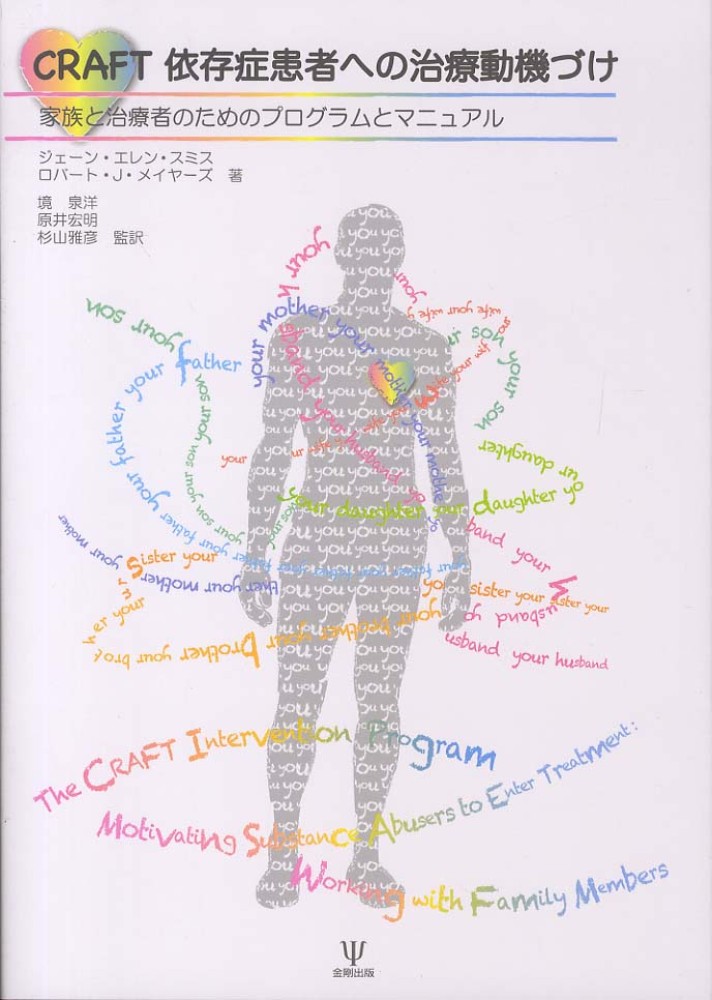 CRAFT 依存症患者への治療動機づけ
家族と治療者のためのプログラムとマニュアル
ジェーン・エレン・スミス
ロバート・J・メイヤーズ 著
境 泉洋
原井宏明
杉山雅彦 監訳
your son your son
your father your father
your mother your mother your mother
your husband
your son your son
your daughter your daughter
sister your
your mother
your brother your brother
sister your sister your
husband your
usband your husband
The CRAFT Intervention Program
Motivating Substance Abusers to Enter Treatment:
Working with Family Members
金剛出版